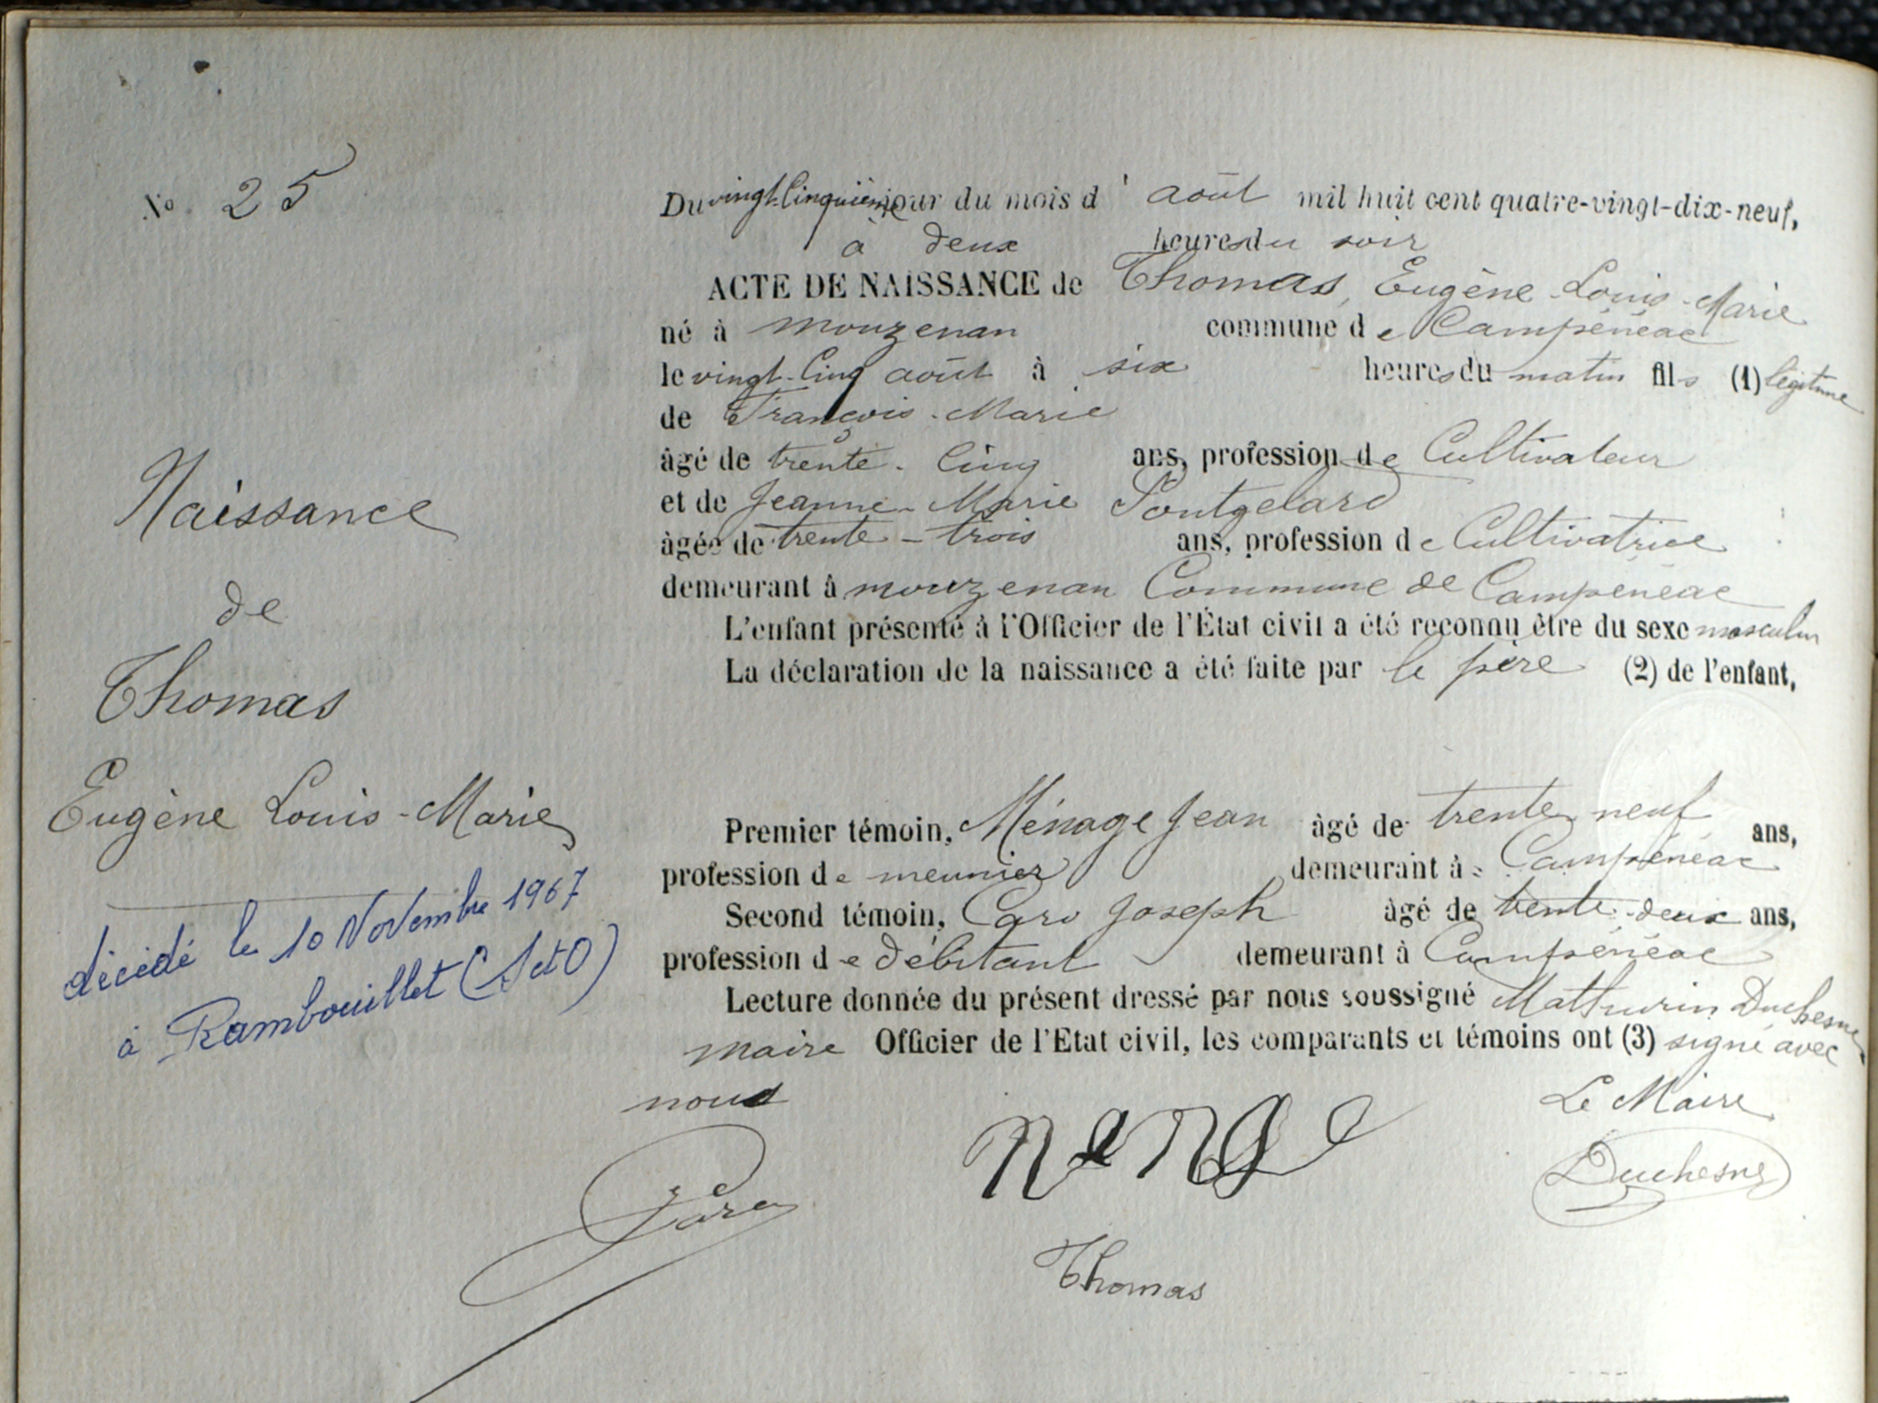 No. 25
Du vingt-Cinquième jour du mois d' août mil huit cent quatre-vingt-dix-neuf,
à deux heures du soir
ACTE DE NAISSANCE de Thomas, Eugène-Louis-Marie
né à mouzenan commune de Campénéac
le vingt-Cinq août à six heures du matin fils (1) légitime
de François-Marie
âgé de trente-Cinq ans, profession de Cultivateur
et de Jeanne-Marie Pontgelard
âgée de trente-trois ans, profession de Cultivatrice
demeurant à mouzenan Commune de Campénéac
L'enfant présenté à l'Officier de l'État civil a été reconnu être du sexe masculin
La déclaration de la naissance a été faite par le père (2) de l'enfant,
Naissance
de
Thomas
Eugène Louis-Marie
décédé le 10 Novembre 1967
à Rambouillet (S et O)
Premier témoin, Ménage Jean âgé de trente-neuf ans,
profession de meunier demeurant à Campénéac
Second témoin, Caro Joseph âgé de trente-deux ans,
profession de débitant demeurant à Campénéac
Lecture donnée du présent dressé par nous soussigné Mathurin Duchesne
maire Officier de l'Etat civil, les comparants et témoins ont (3) signé avec
nous
Le Maire
Duchesne
Thomas